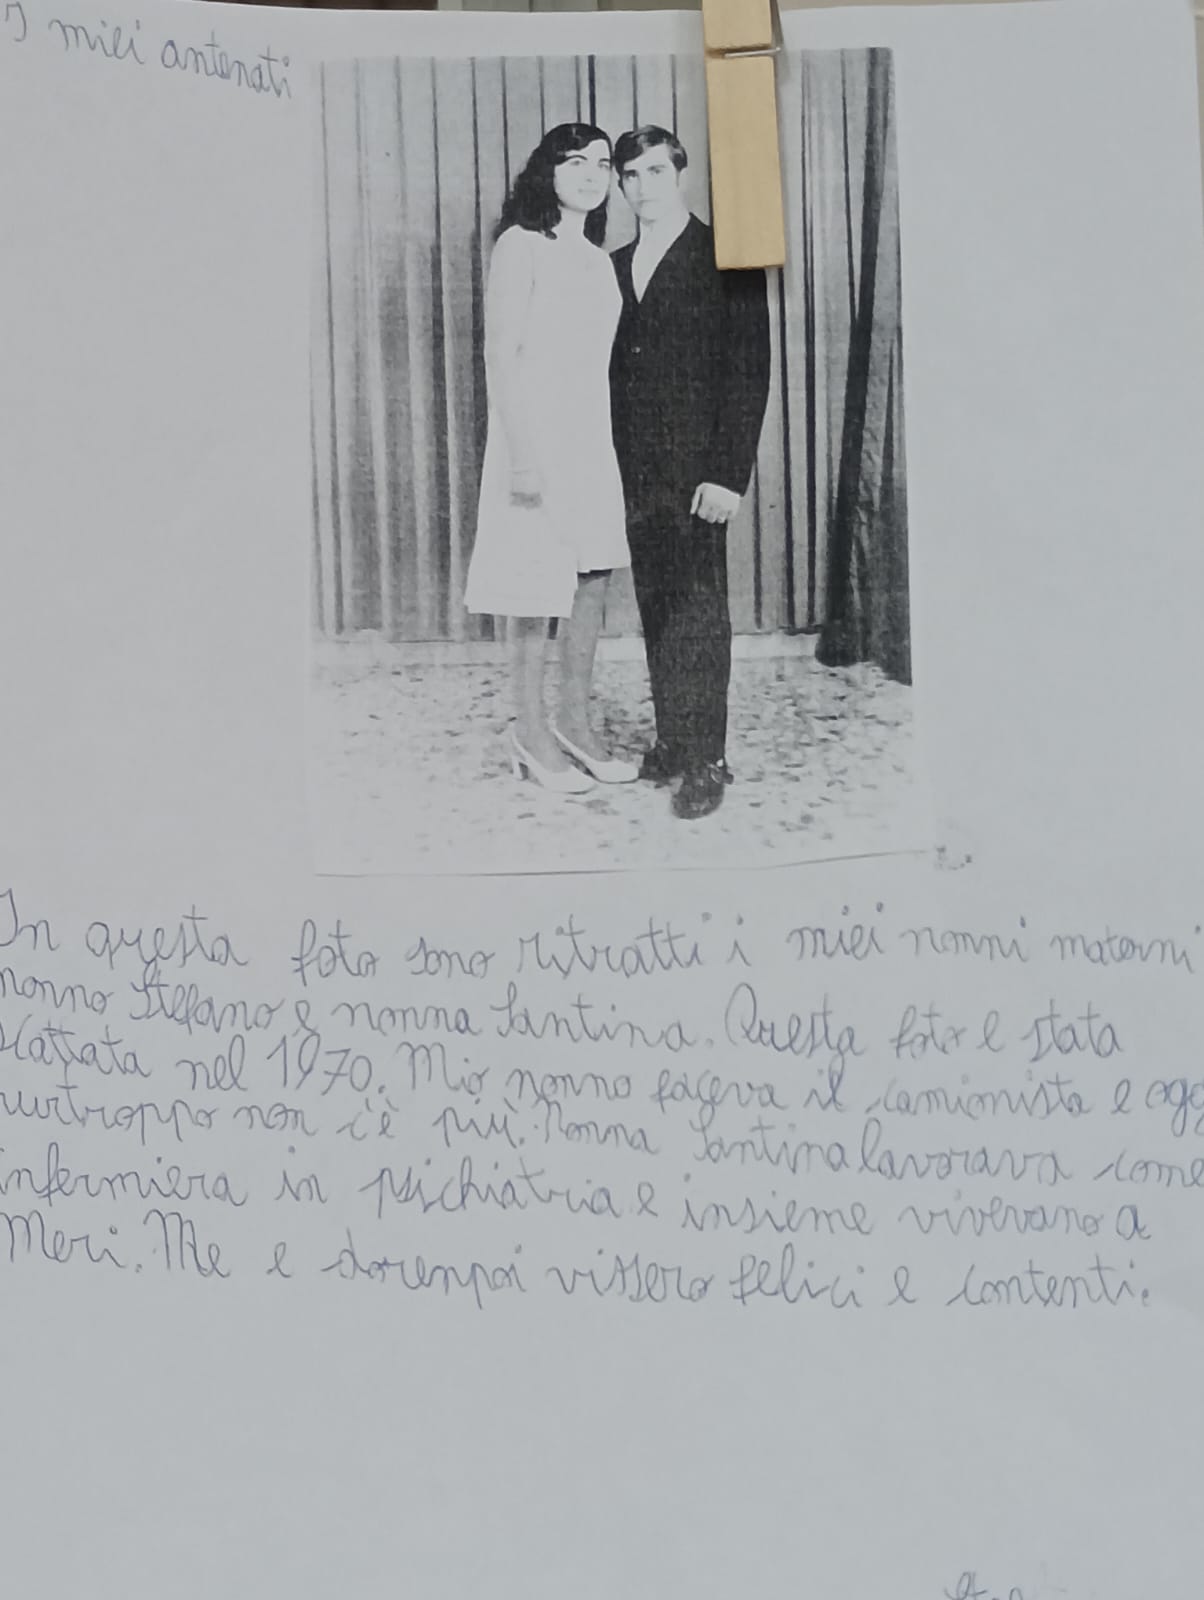 I miei antenati
In questa foto sono ritratti i miei nonni materni
nonno Stefano e nonna Santina. Questa foto è stata
scattata nel 1970. Mio nonno faceva il camionista e ogg
purtroppo non c'è più. Nonna Santina lavorava come
infermiera in psichiatria e insieme vivevano a
Meri. Me e dorenpoi vissero felici e contenti.